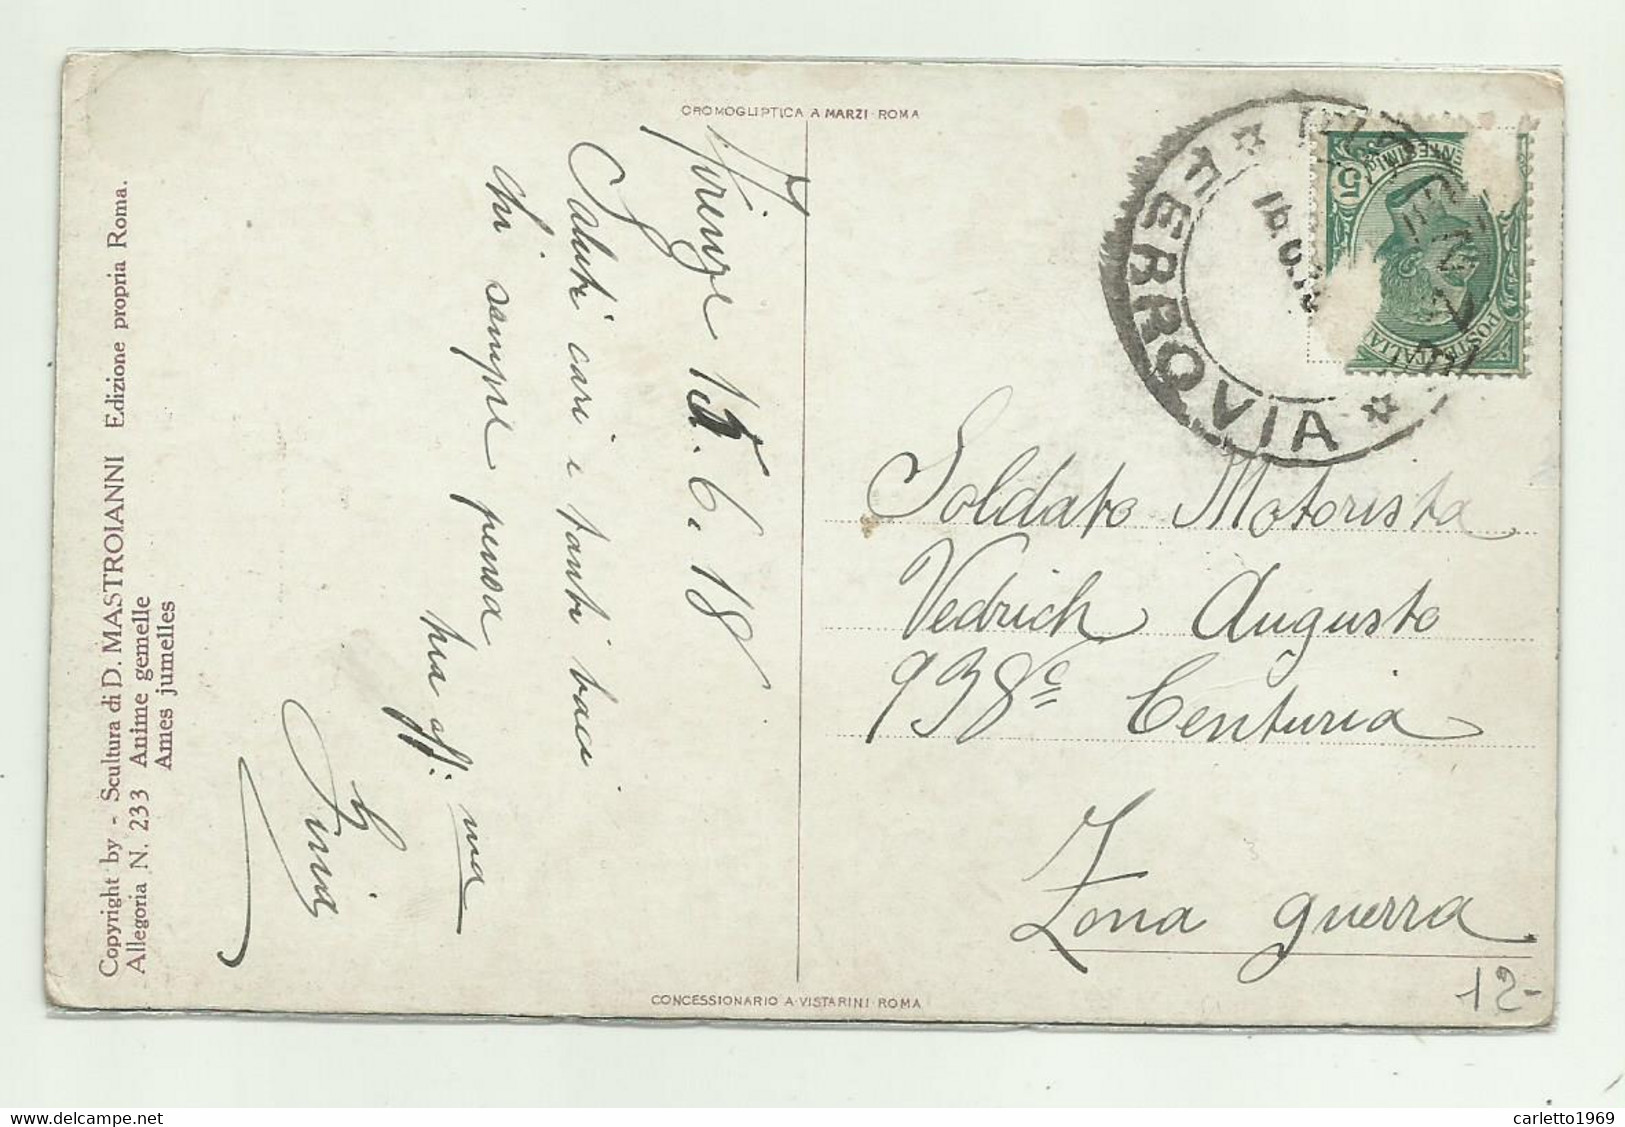 CROMOGLIPTICA A MARZI · ROMA
Firenze 15.6.18
Saluti cari e tanti baci
chi sempre pensa
ma aff:
Gina
Copyright by - Scultura di D. MASTROIANNI Edizione propria Roma.
Allegoria N. 233 Anime gemelle
Ames jumelles
FERROVIA
POSTE ITALIANE
5
Soldato Motorista
Vedrich Augusto
938ª Centuria
Zona guerra
12-
CONCESSIONARIO A·VISTARINI·ROMA
carletto1969
delcampe.net